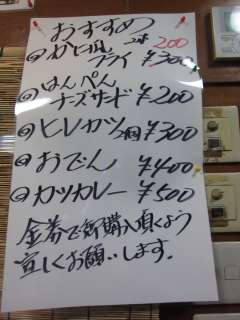 おすすめ
◎かに風フライ 2本 200 ¥300
◎はんぺん
チーズサンド ¥200
◎ヒレカツ2個 ¥300
◎おでん ¥400
◎カツカレー ¥500
金券で御購入頂くよう
宜しくお願いします。